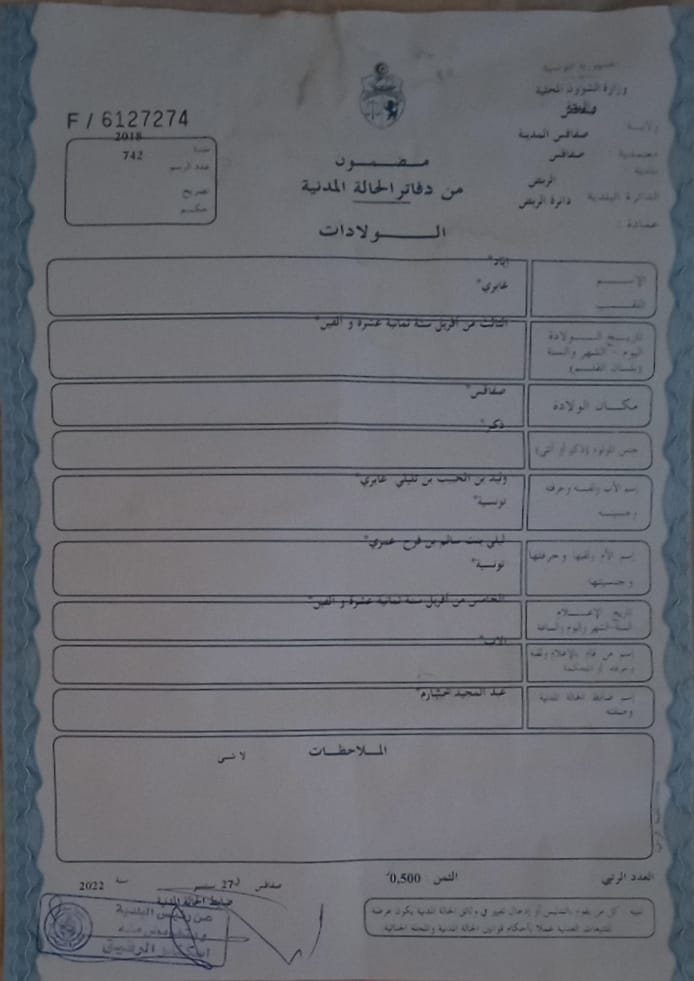 الجمهورية التونسية
وزارة الشؤون المحلية
ولاية: صفاقس
معتمدية: صفاقس المدينة
بلدية صفاقس
الدائرة البلدية الربض
عمادة: دائرة الربض
F / 6127274
سنة 2018
عدد الرسم 742
تصريح
حكم
مضمون
من دفاتر الحالة المدنية
الولادات
الإسم إياد"
اللقب عابري"
تاريخ الولادة الثالث من أفريل سنة ثمانية عشرة و ألفين"
اليوم - الشهر والسنة
(بلسان القلم)
مكان الولادة صفاقس"
جنس المولود (ذكر أو أنثى) ذكر"
إسم الأب ولقبه وحرفته وليد بن الحبيب بن تليلي عابري"
وجنسيته تونسية"
إسم الأم ولقبها وحرفتها ليلى بنت سالم بن فرح عمري"
وجنسيتها تونسية"
تاريخ الإعلام الخامس من أفريل سنة ثمانية عشرة و ألفين"
السنة-الشهر واليوم والساعة
إسم من قام بالإعلام ولقبه الأب"
وحرفته أو المحكمة
إسم ضابط الحالة المدنية عبد المجيد
وصفته
الملاحظات
لا شيء
العدد الرتبي
الثمن 0,500'
صفاقس في 27 سبتمبر سنة 2022
ضابط الحالة المدنية
عن رئيس البلدية
تنبيه : كل من يقوم بالتدليس أو إدخال تغيير في وثائق الحالة المدنية يكون عرضة
للتتبعات العدلية عملا بأحكام قوانين الحالة المدنية والمجلة الجنائية.